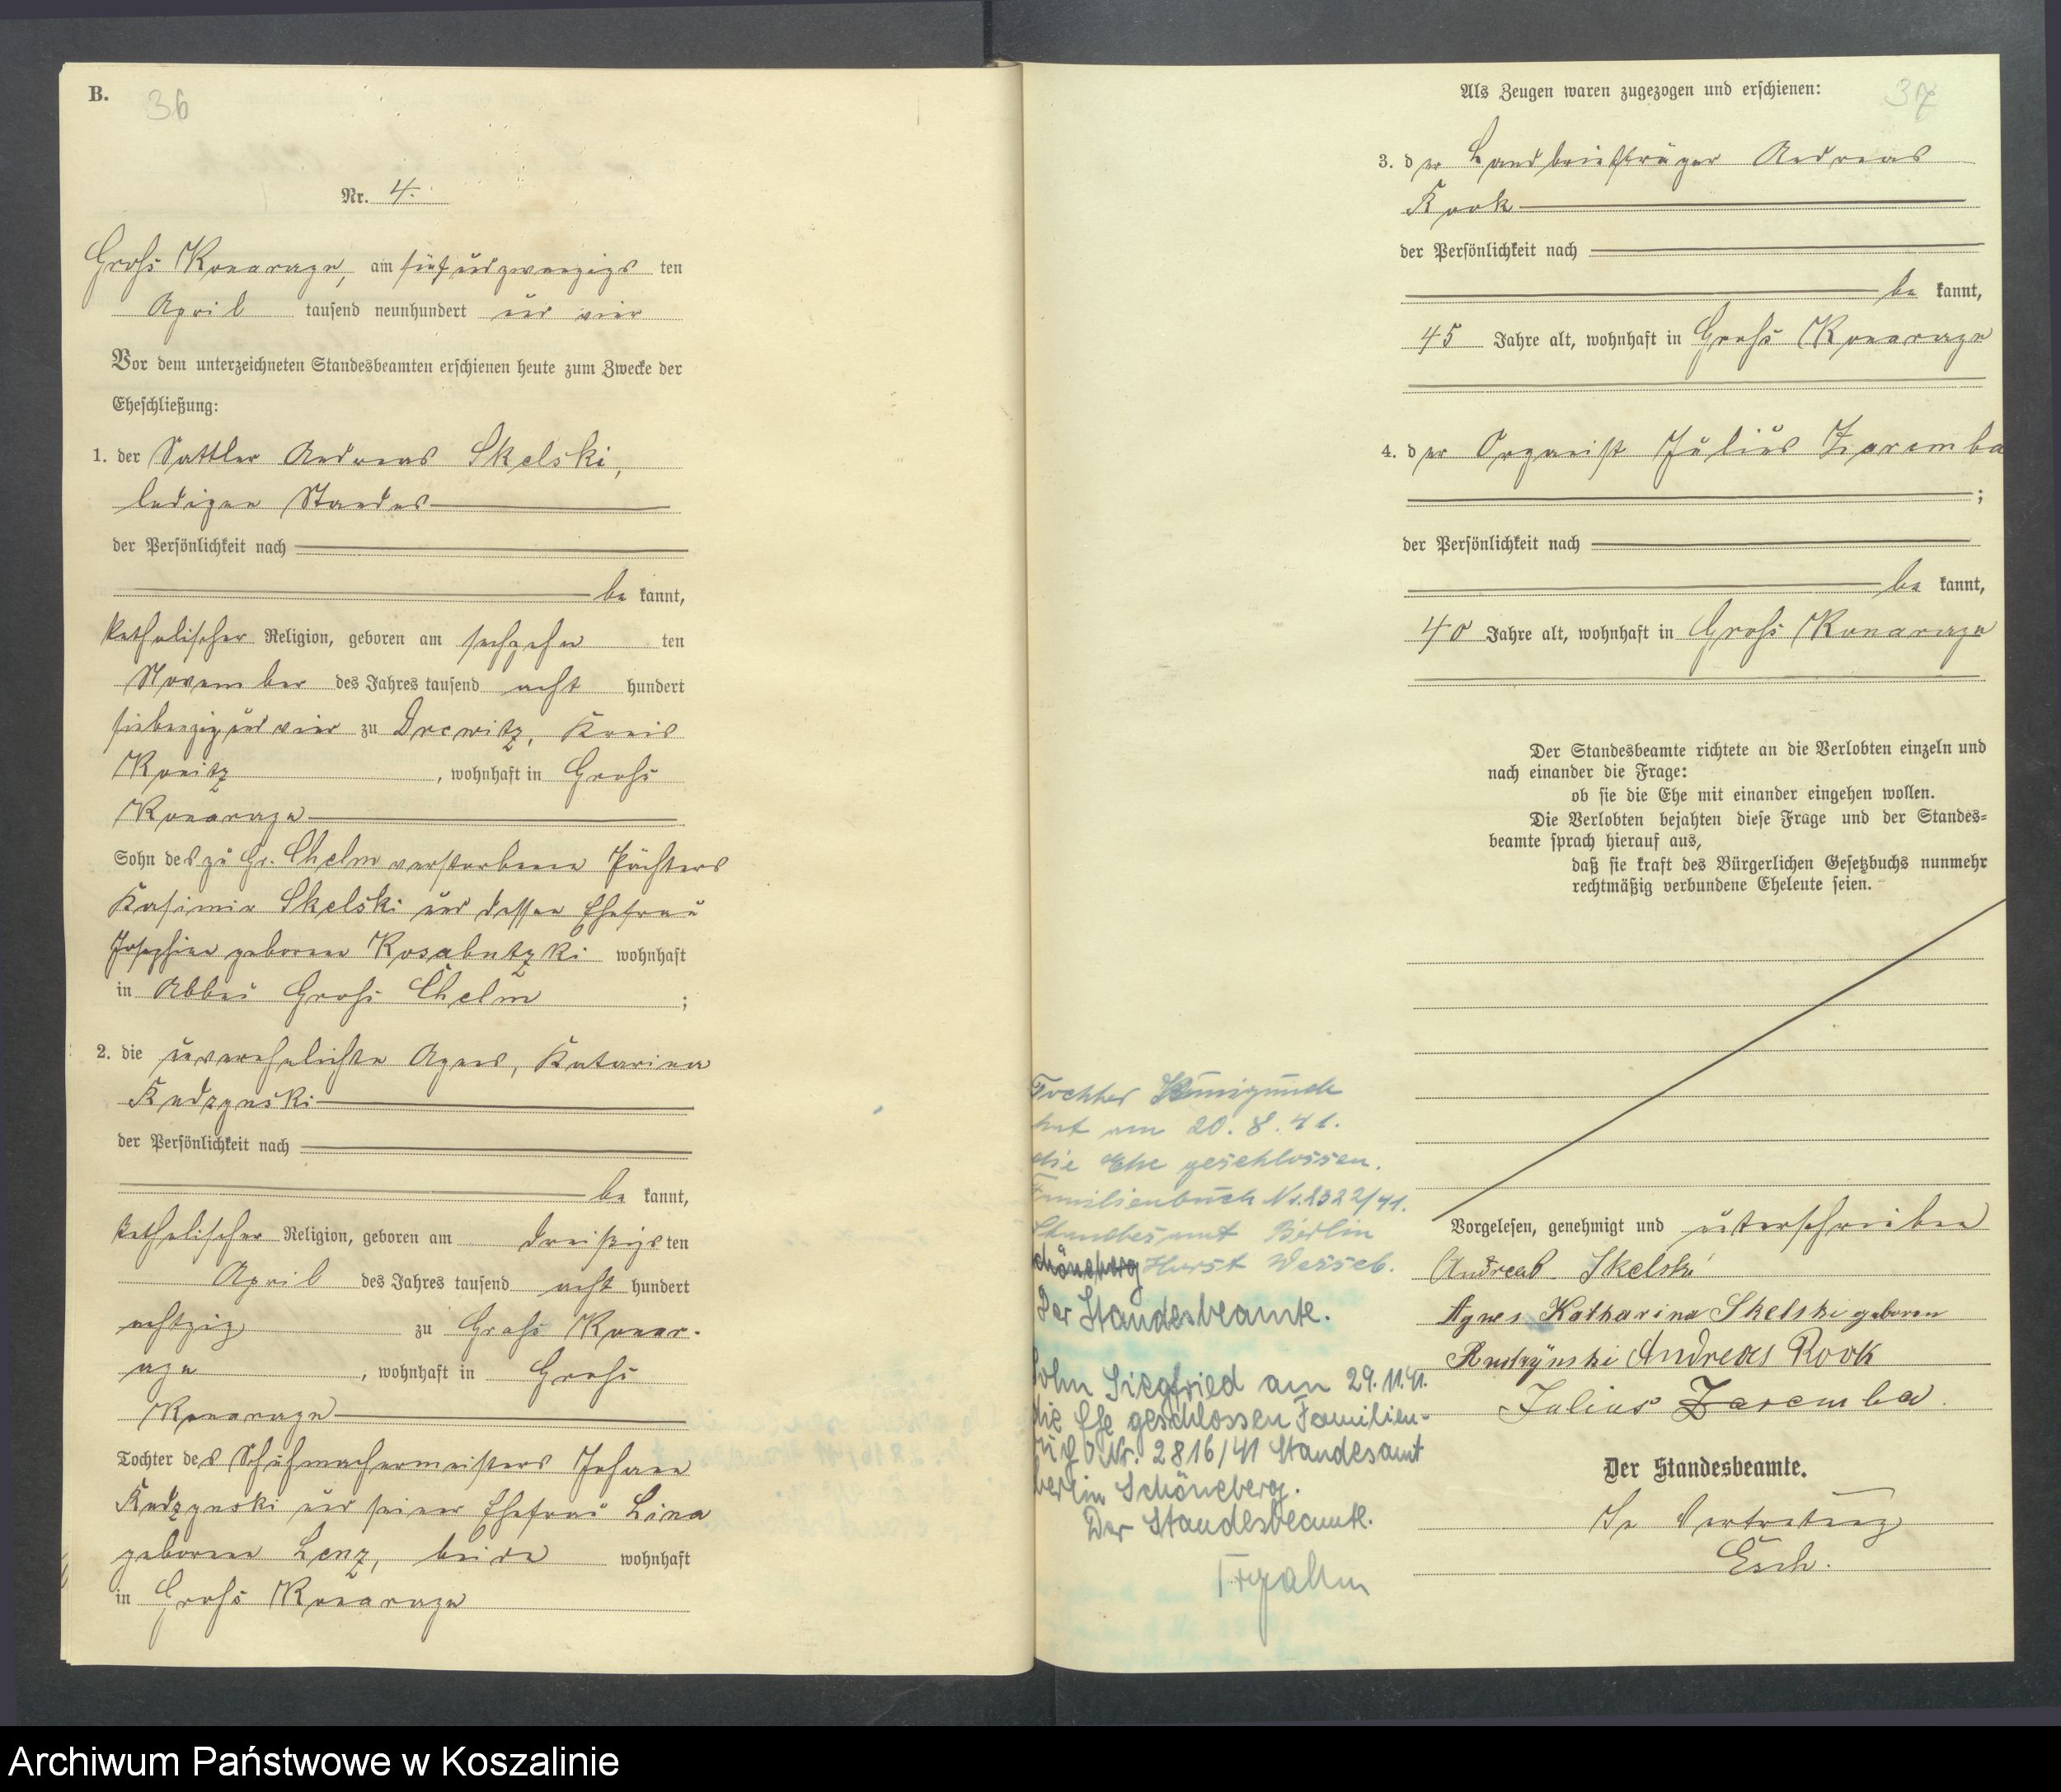 B.
36
Nr. 4.
Groß Konarzyn, am fünfundzwanzigsten
April tausend neunhundert und vier
Vor dem unterzeichneten Standesbeamten erschienen heute zum Zwecke der
Eheschließung:
1. der Sattler Andreas Skelski,
ledigen Standes
der Persönlichkeit nach
bekannt,
katholischer Religion, geboren am sechzehnten
November des Jahres tausend achthundert
siebenzig und vier zu Drewitz, Kreis
Konitz, wohnhaft in Groß
Konarzyn
Sohn des zu Gr. Chelm verstorbenen Pächters
Kasimir Skelski und dessen Ehefrau
Josephine geborene Kosabutzki wohnhaft
in Abbau Groß Chelm;
2. die unverehelichte Agnes, Katarina
Rudzynski
der Persönlichkeit nach
bekannt,
katholischer Religion, geboren am dreißigsten
April des Jahres tausend achthundert
achtzig zu Groß Konar-
zyn, wohnhaft in Groß
Konarzyn
Tochter des Schuhmachermeisters Johann
Rudzynski und seiner Ehefrau Lina
geborene Lenz, beide wohnhaft
in Groß Konarzyn
37
Als Zeugen waren zugezogen und erschienen:
3. der Landbriefträger Andreas
Rook
der Persönlichkeit nach
bekannt,
45 Jahre alt, wohnhaft in Groß Konarzyn
4. der Organist Julius Zaremba
;
der Persönlichkeit nach
bekannt,
40 Jahre alt, wohnhaft in Groß Konarzyn
Der Standesbeamte richtete an die Verlobten einzeln und
nach einander die Frage:
ob sie die Ehe mit einander eingehen wollen.
Die Verlobten bejahten diese Frage und der Standes-
beamte sprach hierauf aus,
daß sie kraft des Bürgerlichen Gesetzbuchs nunmehr
rechtmäßig verbundene Eheleute seien.
Vorgelesen, genehmigt und unterschrieben
Andreas Skelski
Agnes Katharina Skelski geboren
Rudzynski Andreas Rook
Julius Zaremba.
Der Standesbeamte.
In Vertretung
Esch.
Tochter Kunigunde
hat am 20. 8. 41.
die Ehe geschlossen.
Familienbuch Nr. 2322/41.
Standesamt Berlin
Schöneberg Horst Wessel.
Der Standesbeamte.
Sohn Siegfried am 29.11.41.
die Ehe geschlossen Familien-
buch Nr. 2816/41 Standesamt
Berlin Schöneberg.
Der Standesbeamte.
Archiwum Państwowe w Koszalinie